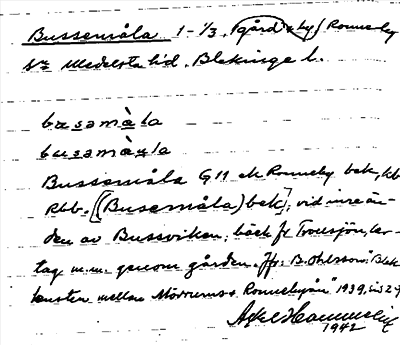 Bussemåla 1-1/3. gård & by / Ronneby
sn Medelsta hd. Blekinge l.
busemåla
busemåla
Bussemåla G11 ek Ronneby bek, kb
Rbb. [(Busemåla) bek], vid inre än-
den av Bussviken, bäck fr Tromsjön, ler-
tag m.m. genom gården. Jfr: B. Ohlsson: "Blek
kusten mellan Mörrums o. Ronnebyån" 1939, sid 24
Axel
1942